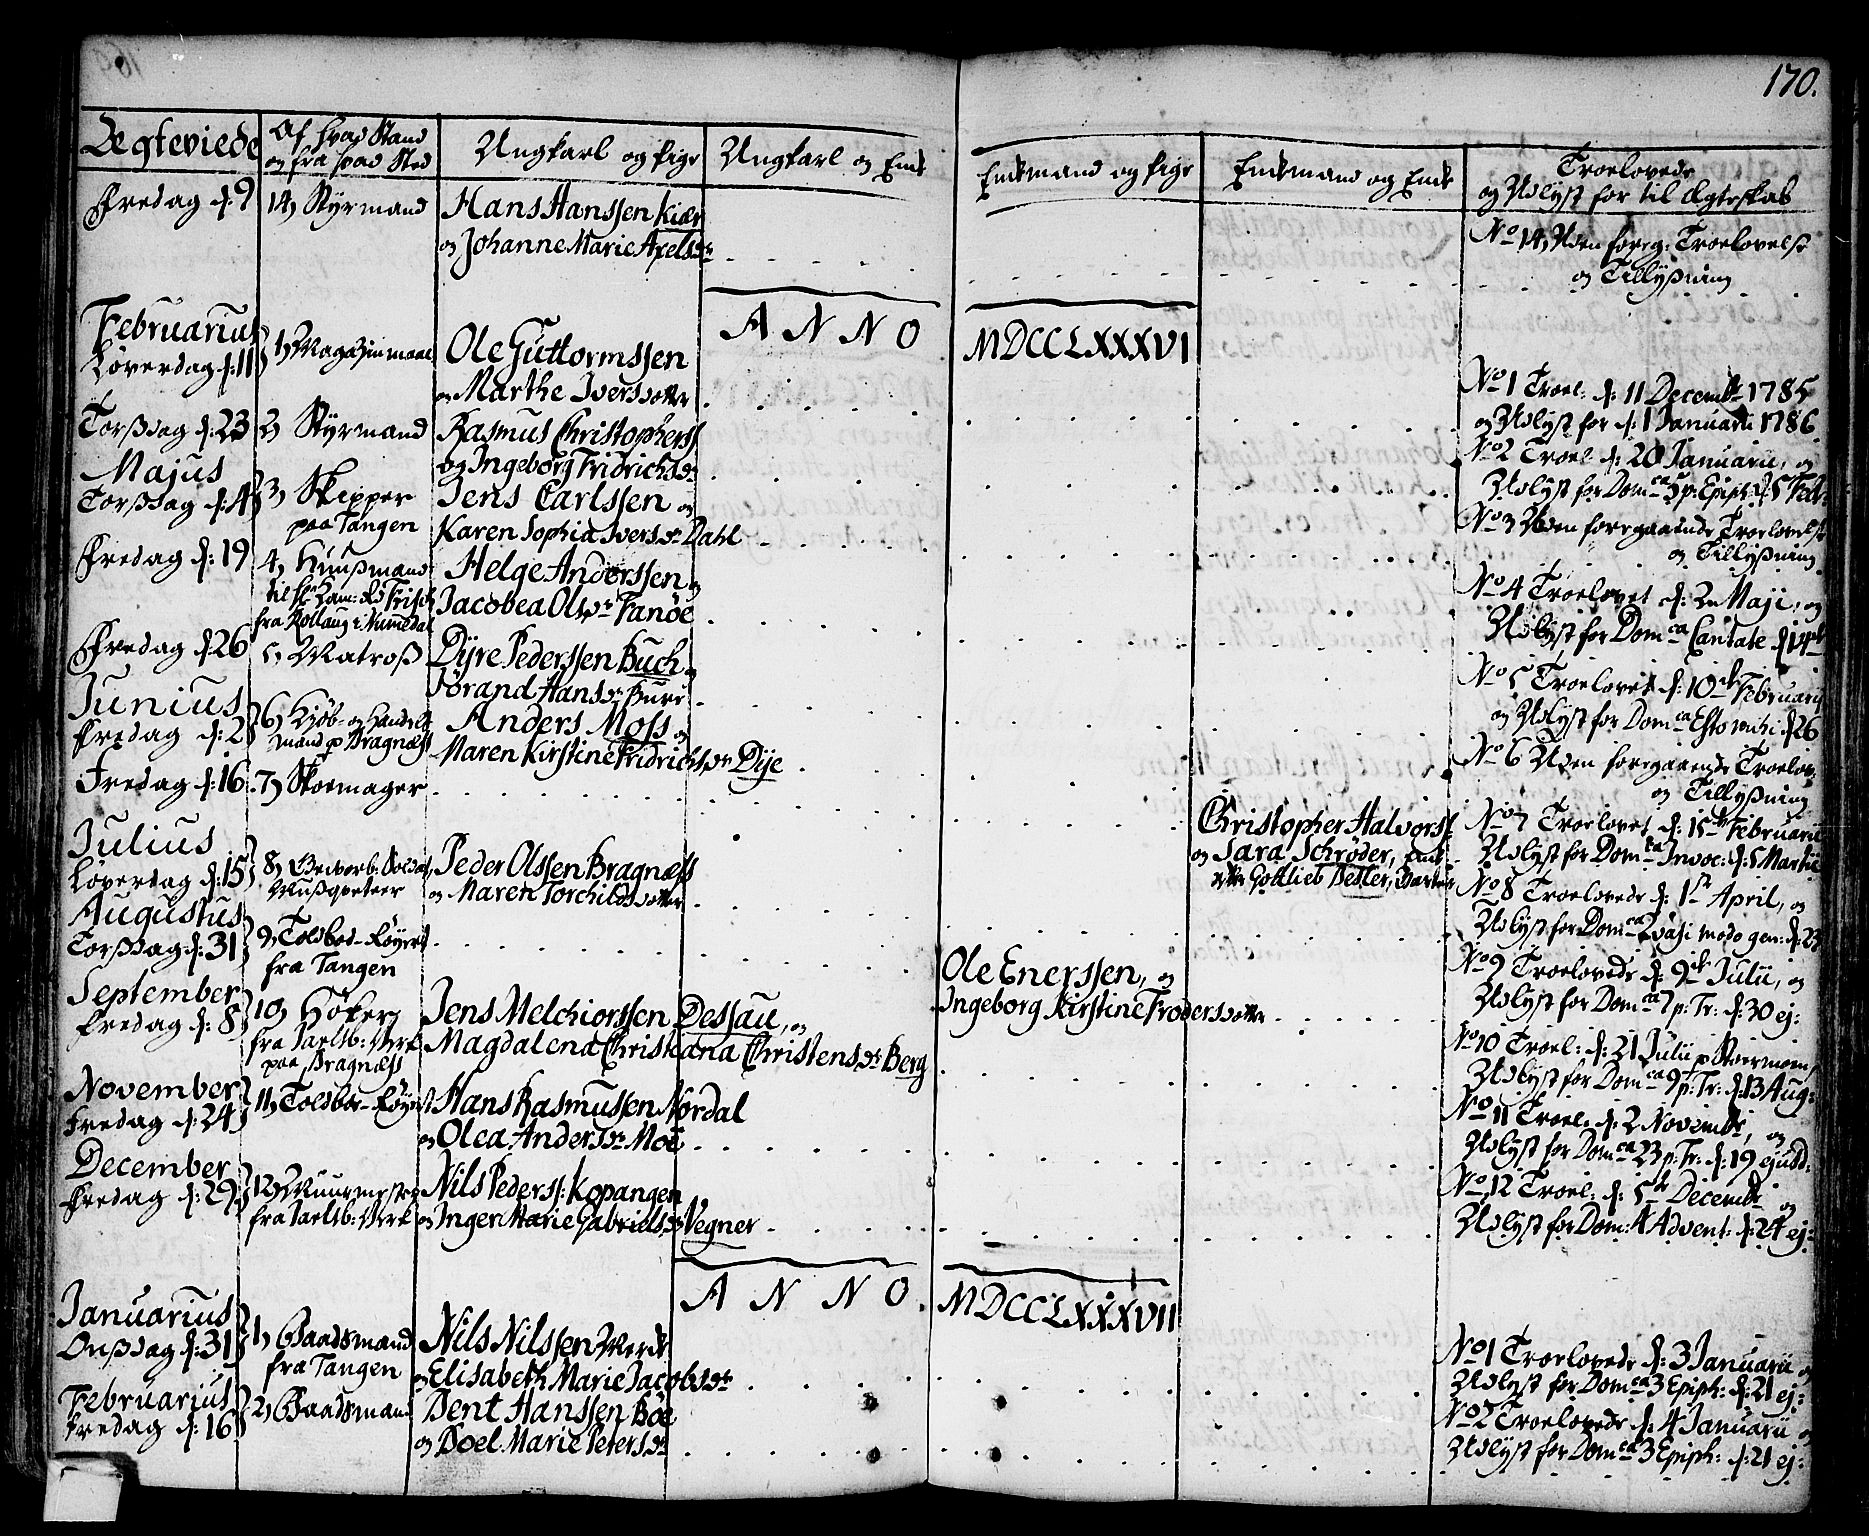 170.
Ægteviede
Af hvad Stand
og fra hvad Sted
Ungkarl og Pige
Ungkarl og Enke
Enkemand og Pige
Enkemand og Enke
Troelovede
og Udlyst for til Ægteskab
Fredag d: 9
14) Styrmand
Hans Hanssen Kiær
og Johanne Marie Axelsdr
No 14) Uden foreg: Troelovelse
og Tillysning
ANNO MDCCLXXXVI
Februarius
Løverdag d: 11
1) Magazinmand
Ole Guttormssen
og Marthe Iversdotter
No 1 Troel: d: 11 Decembr 1785
og Udlyst for d: 1 Januarii 1786
Torsdag d: 23
2) Styrmand
Rasmus Christopherss
og Ingeborg Fridrichsdr
No 2 Troel: d: 20 Januarii, og
Udlyst for Domca 5 p: Epiph: d: 5 Febr:
Majus
Torsdag d: 4
3) Skipper
paa Tangen
Jens Carlssen og
Karen Sophia Iversdr Dahl
No 3 Uden foregaaende Troelovelse
og Tillysning
Fredag d: 19
4) Huusmand
fra Rollaug i Nummedal
Helge Anderssen og
Jacobea Olsdr Fanøe
No 4 Troelovet d: 2n Maji, og
Udlyst for Domca Cantate d 14de
Fredag d 26
5) Matros
Dyre Pederssen Buch og
Jørand Hansdr Bure
No 5 Troelovet d: 10de Februarii
og Udlyst for Domca Esto mihi d 26
Junius
Fredag d: 2
6) Kiøb- og Handels
mand p Bragnæss
Anders Moss og
Maren Kirstine Fridrichsdr Dye
No 6 Uden foregaaende Troelov:
og Tillysning
Fredag d: 16
7) Skoemager
Christopher Halvorss
og Sara Schrøder, Enke
efter Gotlieb Besler,
No 7 Troelovet d: 15de Februarii
Udlyst for Domca Invoc: d: 5 Martii
Julius
Løverdag d: 15
8) Gevorb: Soldat
Musqveteer
Peder Olssen Bragnæss
og Maren Torchildsdotter
No 8 Troelovede d: 1ste April, og
Udlyst for Domca Qvasi modo gen: d: 23
Augustus
Torsdag d: 31
9) Tolboe-Røyert
fra Tangen
Ole Enerssen, og
Ingeborg Kirstine Frodersdotter
No 9 Troelovede d: 9de Julii, og
Udlyst for Domca 7 p: Tr: d: 30 ej:
September
Fredag d: 8
10) Høker
fra Jarlsb: Verk
paa Bragnæss
Jens Melchiorssen Dessau, og
Magdalena Christiana Christensdr Berg
No 10 Troel: d: 21 Julii p
Udlyst for Domca 9 p: Tr: d: 13 Aug:
November
Fredag d: 24
11) Tolboe-Røyert
Hans Rasmussen Nordal
og Olea Andersdr Moe
No 11 Troel: d: 2 Novembr, og
Udlyst for Domca 23 p: Tr: d: 19 ejusd:
December
Fredag d: 29
12) Muurmester
fra Jarlsb: Verk
Nils Pederss: Kopangen
og Inger Marie Gabrielsdr Vegner
No 12 Troel: d: 5te Decembr og
Udlyst for Dom: 4 Advent: d: 24 ej:
ANNO MDCCLXXXVII
Januarius
Onsdag d: 31
1) Baadsmand
fra Tangen
Nils Nilssen Werde
og Elisabeth Marie Jacobsdr
No 1 Troelovede d: 3 Januarii og
Udlyst for Domca 3 Epiph: d: 21 ej:
Februarius
Fredag d: 16
2) Baadsmand
Bent Hanssen Boe
og Boel Marie Petersdr
No 2 Troelovede d: 4 Januarii og
Udlyst for Domca 3 Epiph: d: 21 ej: